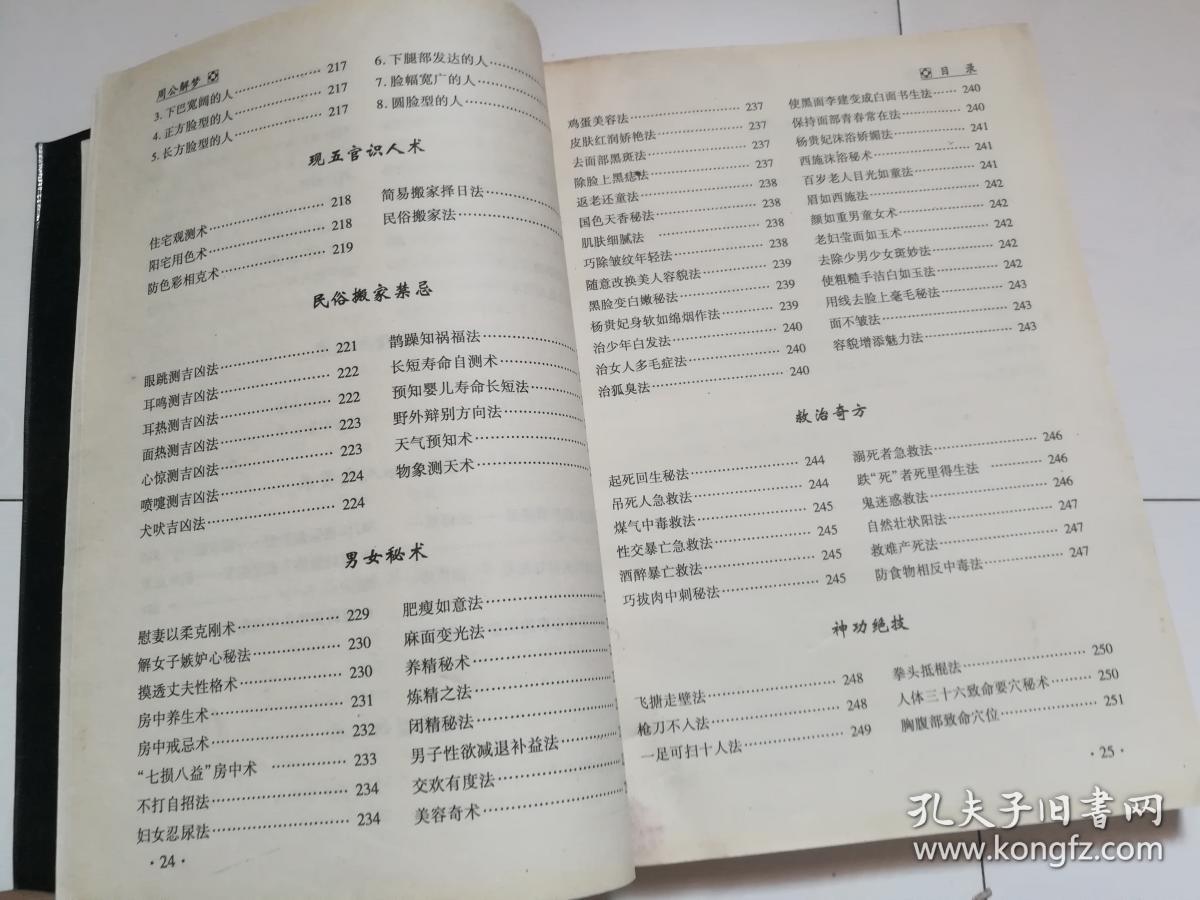 周公解梦
3. 下巴宽阔的人 217
4. 正方脸型的人 217
5. 长方脸型的人 217
6. 下腿部发达的人
7. 脸幅宽广的人
8. 圆脸型的人
现五官识人术
住宅观测术 218
阳宅用色术 218
防色彩相克术 219
简易搬家择日法
民俗搬家法
民俗搬家禁忌
眼跳测吉凶法 221
耳鸣测吉凶法 222
耳热测吉凶法 222
面热测吉凶法 223
心惊测吉凶法 223
喷嚏测吉凶法 224
犬吠吉凶法 224
鹊躁知祸福法
长短寿命自测术
预知婴儿寿命长短法
野外辩别方向法
天气预知术
物象测天术
男女秘术
慰妻以柔克刚术 229
解女子嫉妒心秘法 230
摸透丈夫性格术 230
房中养生术 231
房中戒忌术 232
“七损八益”房中术 233
不打自招法 234
妇女忍尿法 234
肥瘦如意法
麻面变光法
养精秘术
炼精之法
闭精秘法
男子性欲减退补益法
交欢有度法
美容奇术
·24·
目 录
鸡蛋美容法 237
皮肤红润娇艳法 237
去面部黑斑法 237
除脸上黑痣法 237
返老还童法 238
国色天香秘法 238
肌肤细腻法 238
巧除皱纹年轻法 238
随意改换美人容貌法 239
黑脸变白嫩秘法 239
杨贵妃身软如绵烟作法 239
治少年白发法 240
治女人多毛症法 240
治狐臭法 240
使黑面李逵变成白面书生法 240
保持面部青春常在法 240
杨贵妃沐浴娇媚法 241
西施沐浴秘术 241
百岁老人目光如童法 241
眉如西施法 242
颜如重男童女术 242
老妇莹面如玉术 242
去除少男少女斑妙法 242
使粗糙手洁白如玉法 242
用线去脸上毫毛秘法 243
面不皱法 243
容貌增添魅力法 243
救治奇方
起死回生秘法 244
吊死人急救法 244
煤气中毒救法 245
性交暴亡急救法 245
酒醉暴亡救法 245
巧拔肉中刺秘法 245
溺死者急救法 246
跌“死”者死里得生法 246
鬼迷惑救法 246
自然壮状阳法 247
救难产死法 247
防食物相反中毒法 247
神功绝技
飞塘走壁法 248
枪刀不入法 248
一足可扫十人法 249
拳头抵棍法 250
人体三十六致命要穴秘术 250
胸腹部致命穴位 251
·25·
孔夫子旧书网
www.kongfz.com